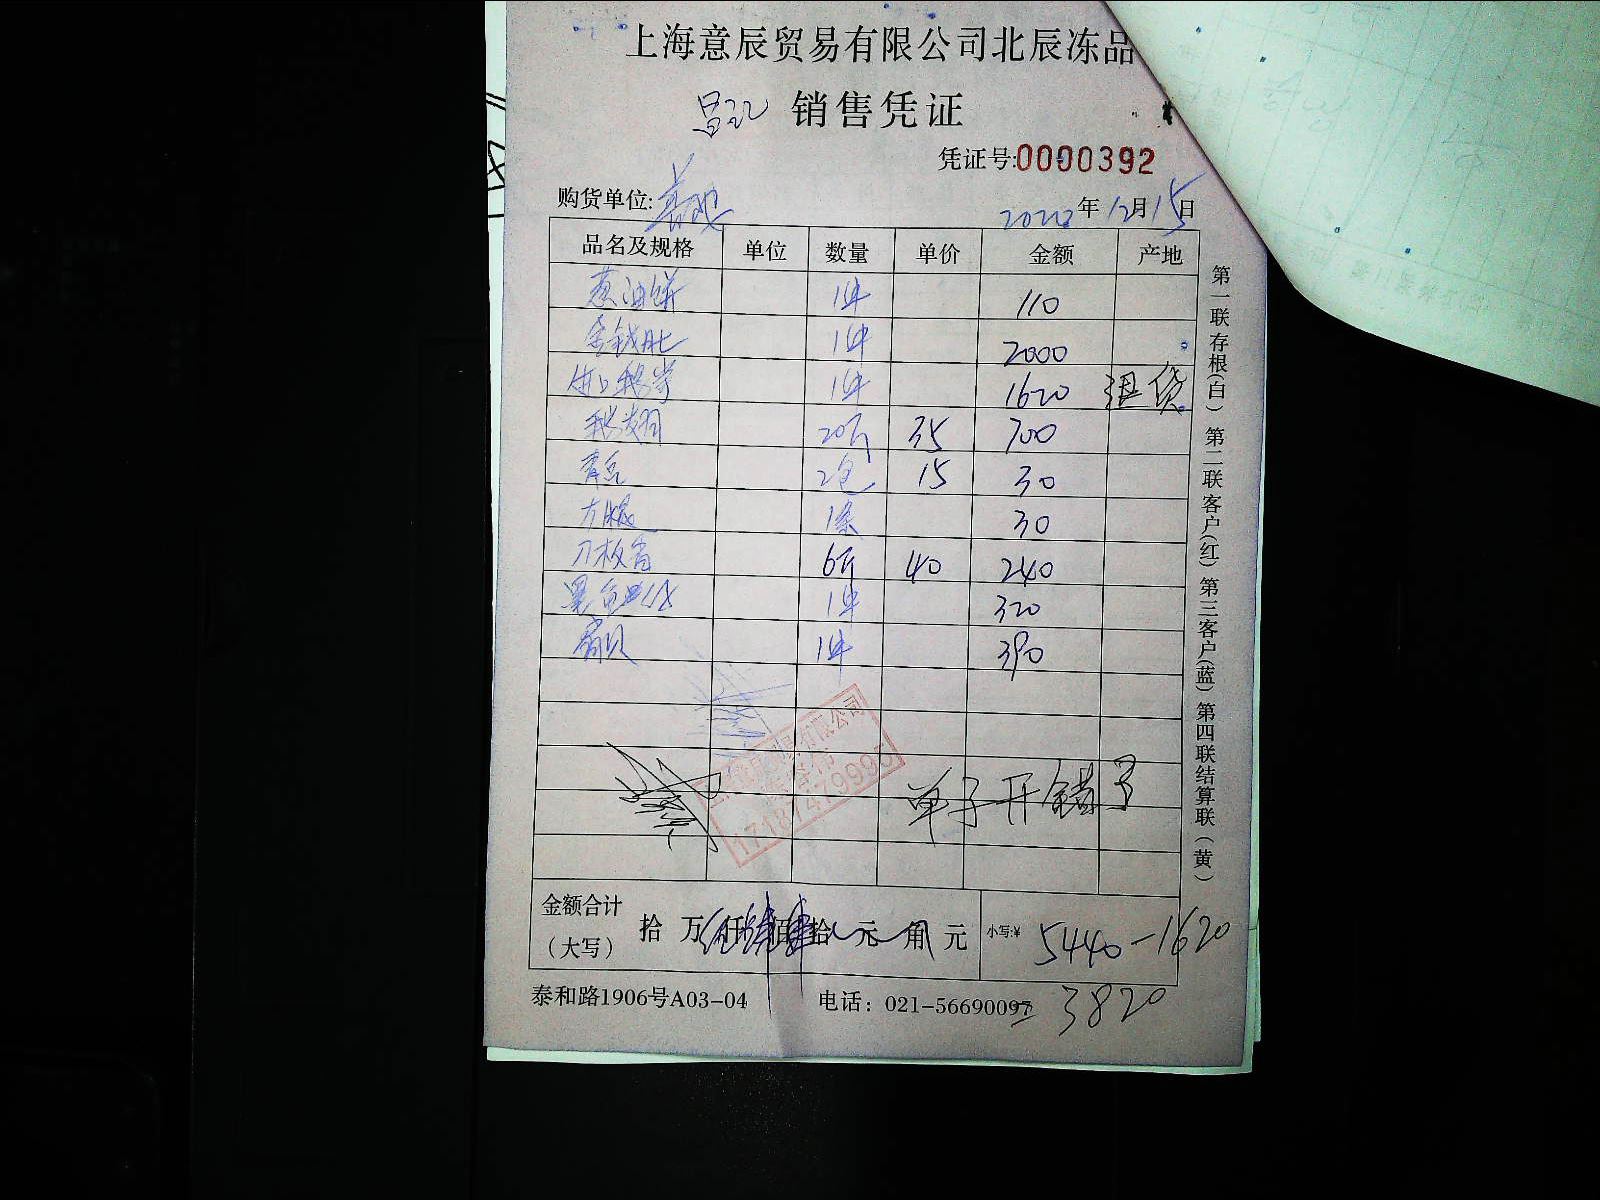 上海意辰贸易有限公司北辰冻品
销售凭证
凭证号:0000392
购货单位:
年 12月15日
品名及规格 单位 数量 单价 金额 产地
葱油饼 1件 110
金钱肚 1件 2000
1件 1620 退货
鹅翅 20斤 35 700
青豆 2包 15 30
方腿 1条 30
刀板香 6斤 40 240
黑鱼片 1件 320
扇贝 1件 390
有限公司
17187479995
单子开错了
金额合计(大写) 拾 万 仟 佰 拾 元 角 元 小写:¥ 5440-1620
=3820
泰和路1906号A03-04 电话：021-56690097
第一联存根(白) 第二联客户(红) 第三客户(蓝) 第四联结算联(黄)